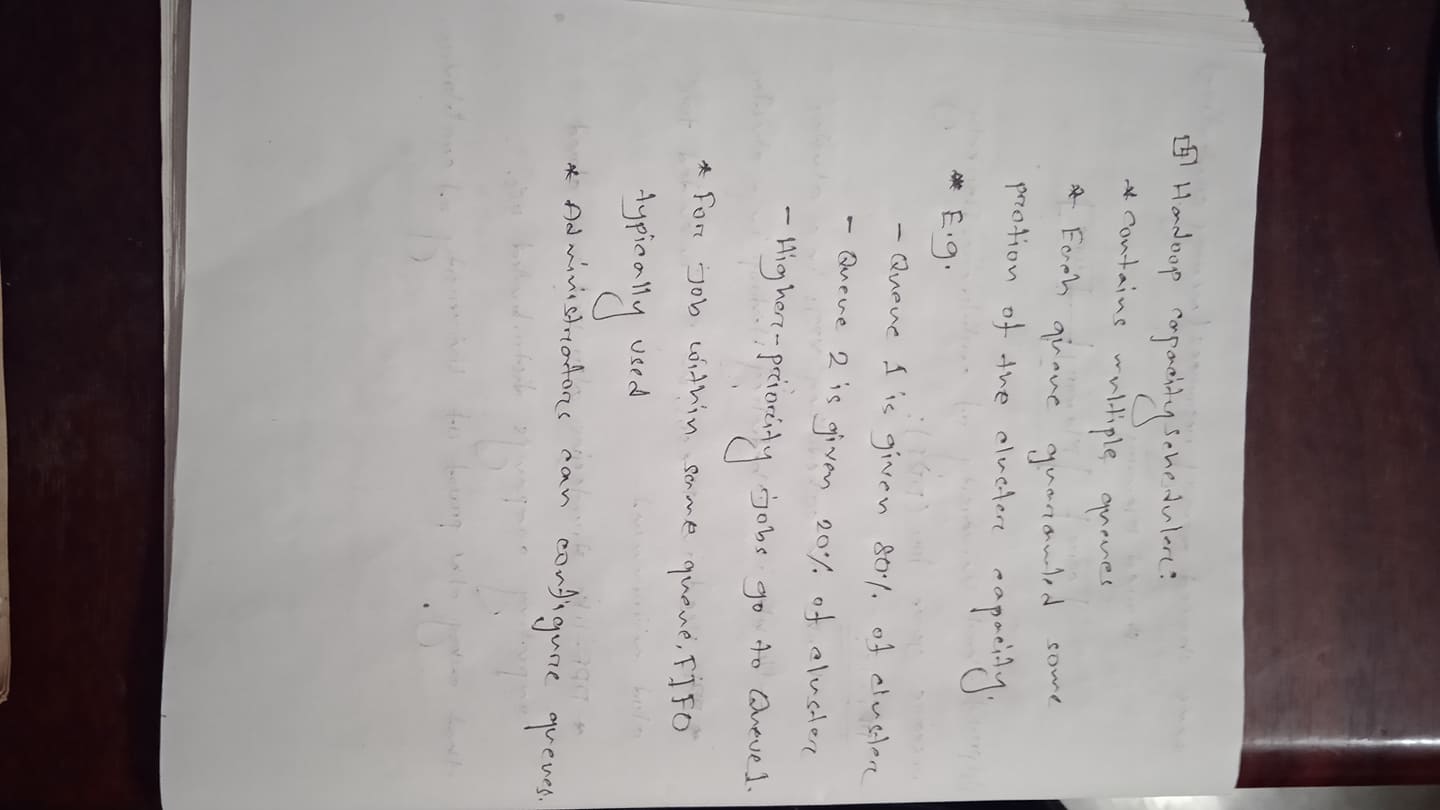 Hadoop capacity scheduler:
* contains multiple queues
* Each queue guaranteed some
protion of the cluster capacity.
* E.g.
- Queue 1 is given 80% of cluster
- Queue 2 is given 20% of cluster
- Higher-priority jobs go to Queue 1.
* For job within same queue, FIFO
typically used
* Administrators can configure queues.